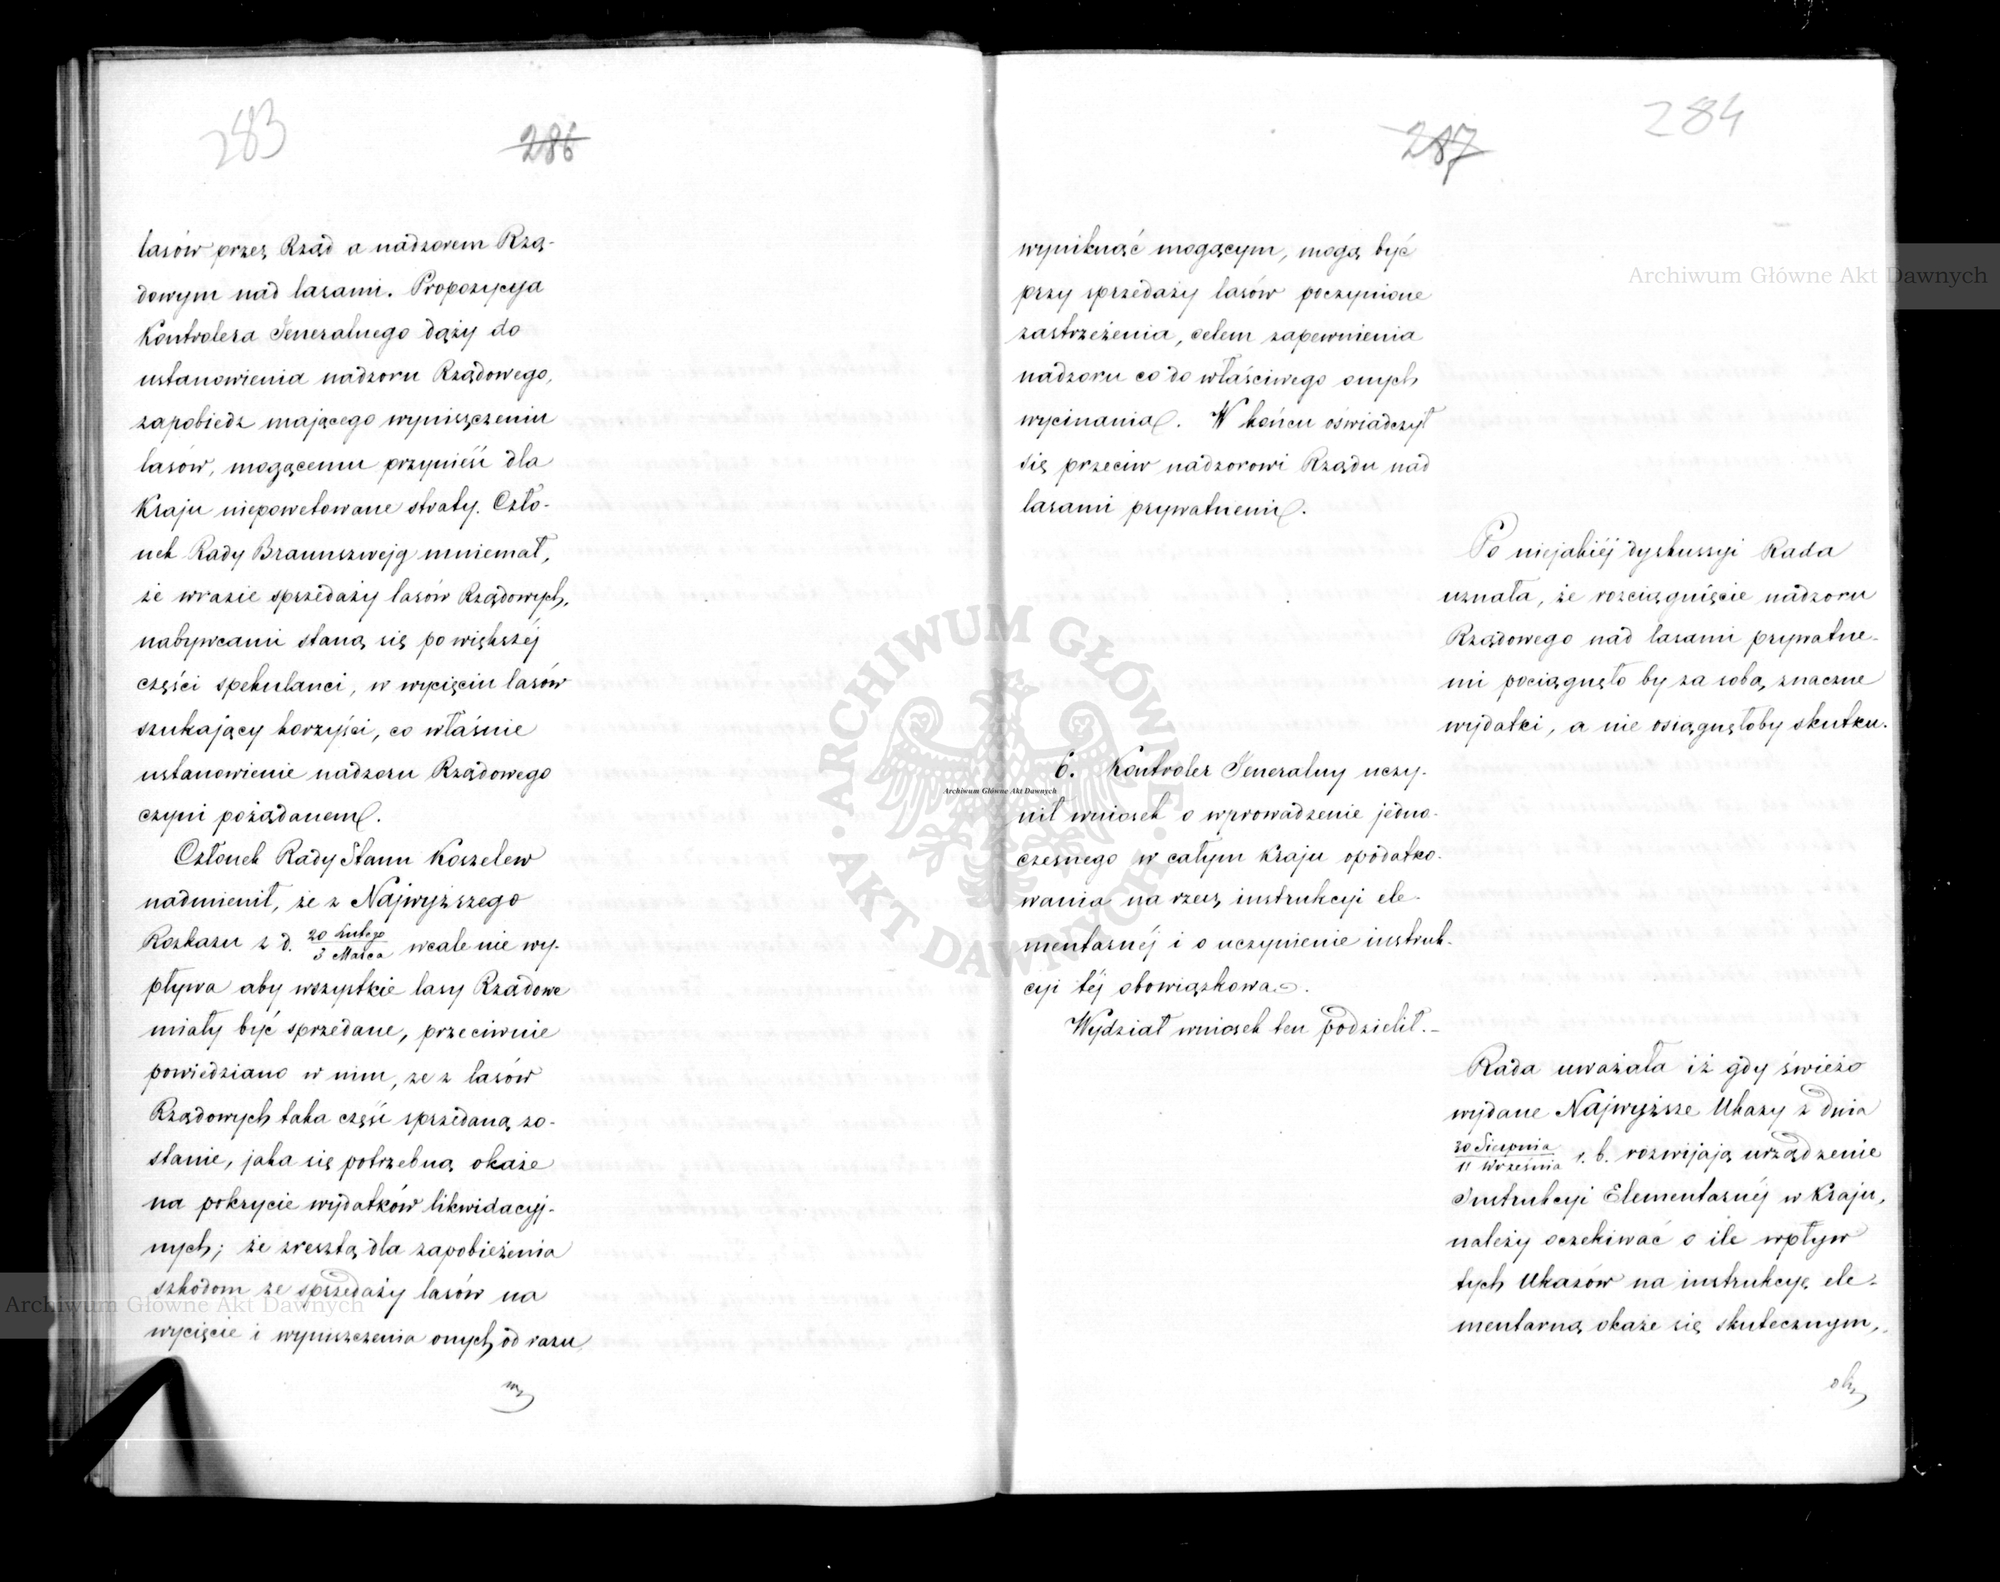 283
286
lasów przez Rząd a nadzorem Rzą-
dowym nad lasami. Propozycya
Kontrolera Jeneralnego dąży do
ustanowienia nadzoru Rządowego,
zapobiedz mającego wyniszczeniu
lasów, mogącemu przynieść dla
Kraju niepowetowane straty. Czło-
nek Rady Braunszwejg mniemał,
że wrazie sprzedaży lasów Rządowych,
nabywcami staną się po większéj
części spekulanci, w wycięciu lasów
szukający korzyści, co właśnie
ustanowienie nadzoru Rządowego
czyni pożądanem.
Członek Rady Stanu Koszelew
nadmienił, że z Najwyższego
Rozkazu z d. 20 Lutego / 3 Marca wcale nie wy-
pływa aby wszystkie lasy Rządowe
miały być sprzedane, przeciwnie
powiedziano w nim, że z lasów
Rządowych taka część sprzedaną zo-
stanie, jaka się potrzebną okaże
na pokrycie wydatków likwidacyj-
nych; że zresztą dla zapobieżenia
szkodom ze sprzedaży lasów na
wycięcie i wyniszczenia onych od razu
wy
287
284
wyniknąć mogącym, mogą być
przy sprzedaży lasów poczynione
zastrzeżenia, celem zapewnienia
nadzoru co do właściwego onych
wycinania. W końcu oświadczył
się przeciw nadzorowi Rządu nad
lasami prywatnemi.
Po niejakiéj dyskussyi Rada
uznała, że rozciągnięcie nadzoru
Rządowego nad lasami prywatne-
mi pociągnęło by za sobą znaczne
wydatki, a nie osiągnęłoby skutku.
6. Kontroler Jeneralny uczy-
nił wniosek o wprowadzenie jedno-
czesnego w całym Kraju opodatko-
wania na rzecz instrukcyi ele-
mentarnéj i o uczynienie instruk-
cyi téj obowiązkową.
Wydział wniosek ten podzielił.-
Rada uważała iż gdy świeżo
wydane Najwyższe Ukazy z dnia
30 Sierpnia / 11 Września r. b. rozwijają urządzenie
Instrukcyi Elementarnéj w Kraju,
należy oczekiwać o ile wpływ
tych Ukazów na instrukcyę ele-
mentarną okaże się skutecznym,
ok
Archiwum Główne Akt Dawnych
ARCHIWUM GŁÓWNE
· AKT DAWNYCH ·
Archiwum Główne Akt Dawnych
Archiwum Główne Akt Dawnych